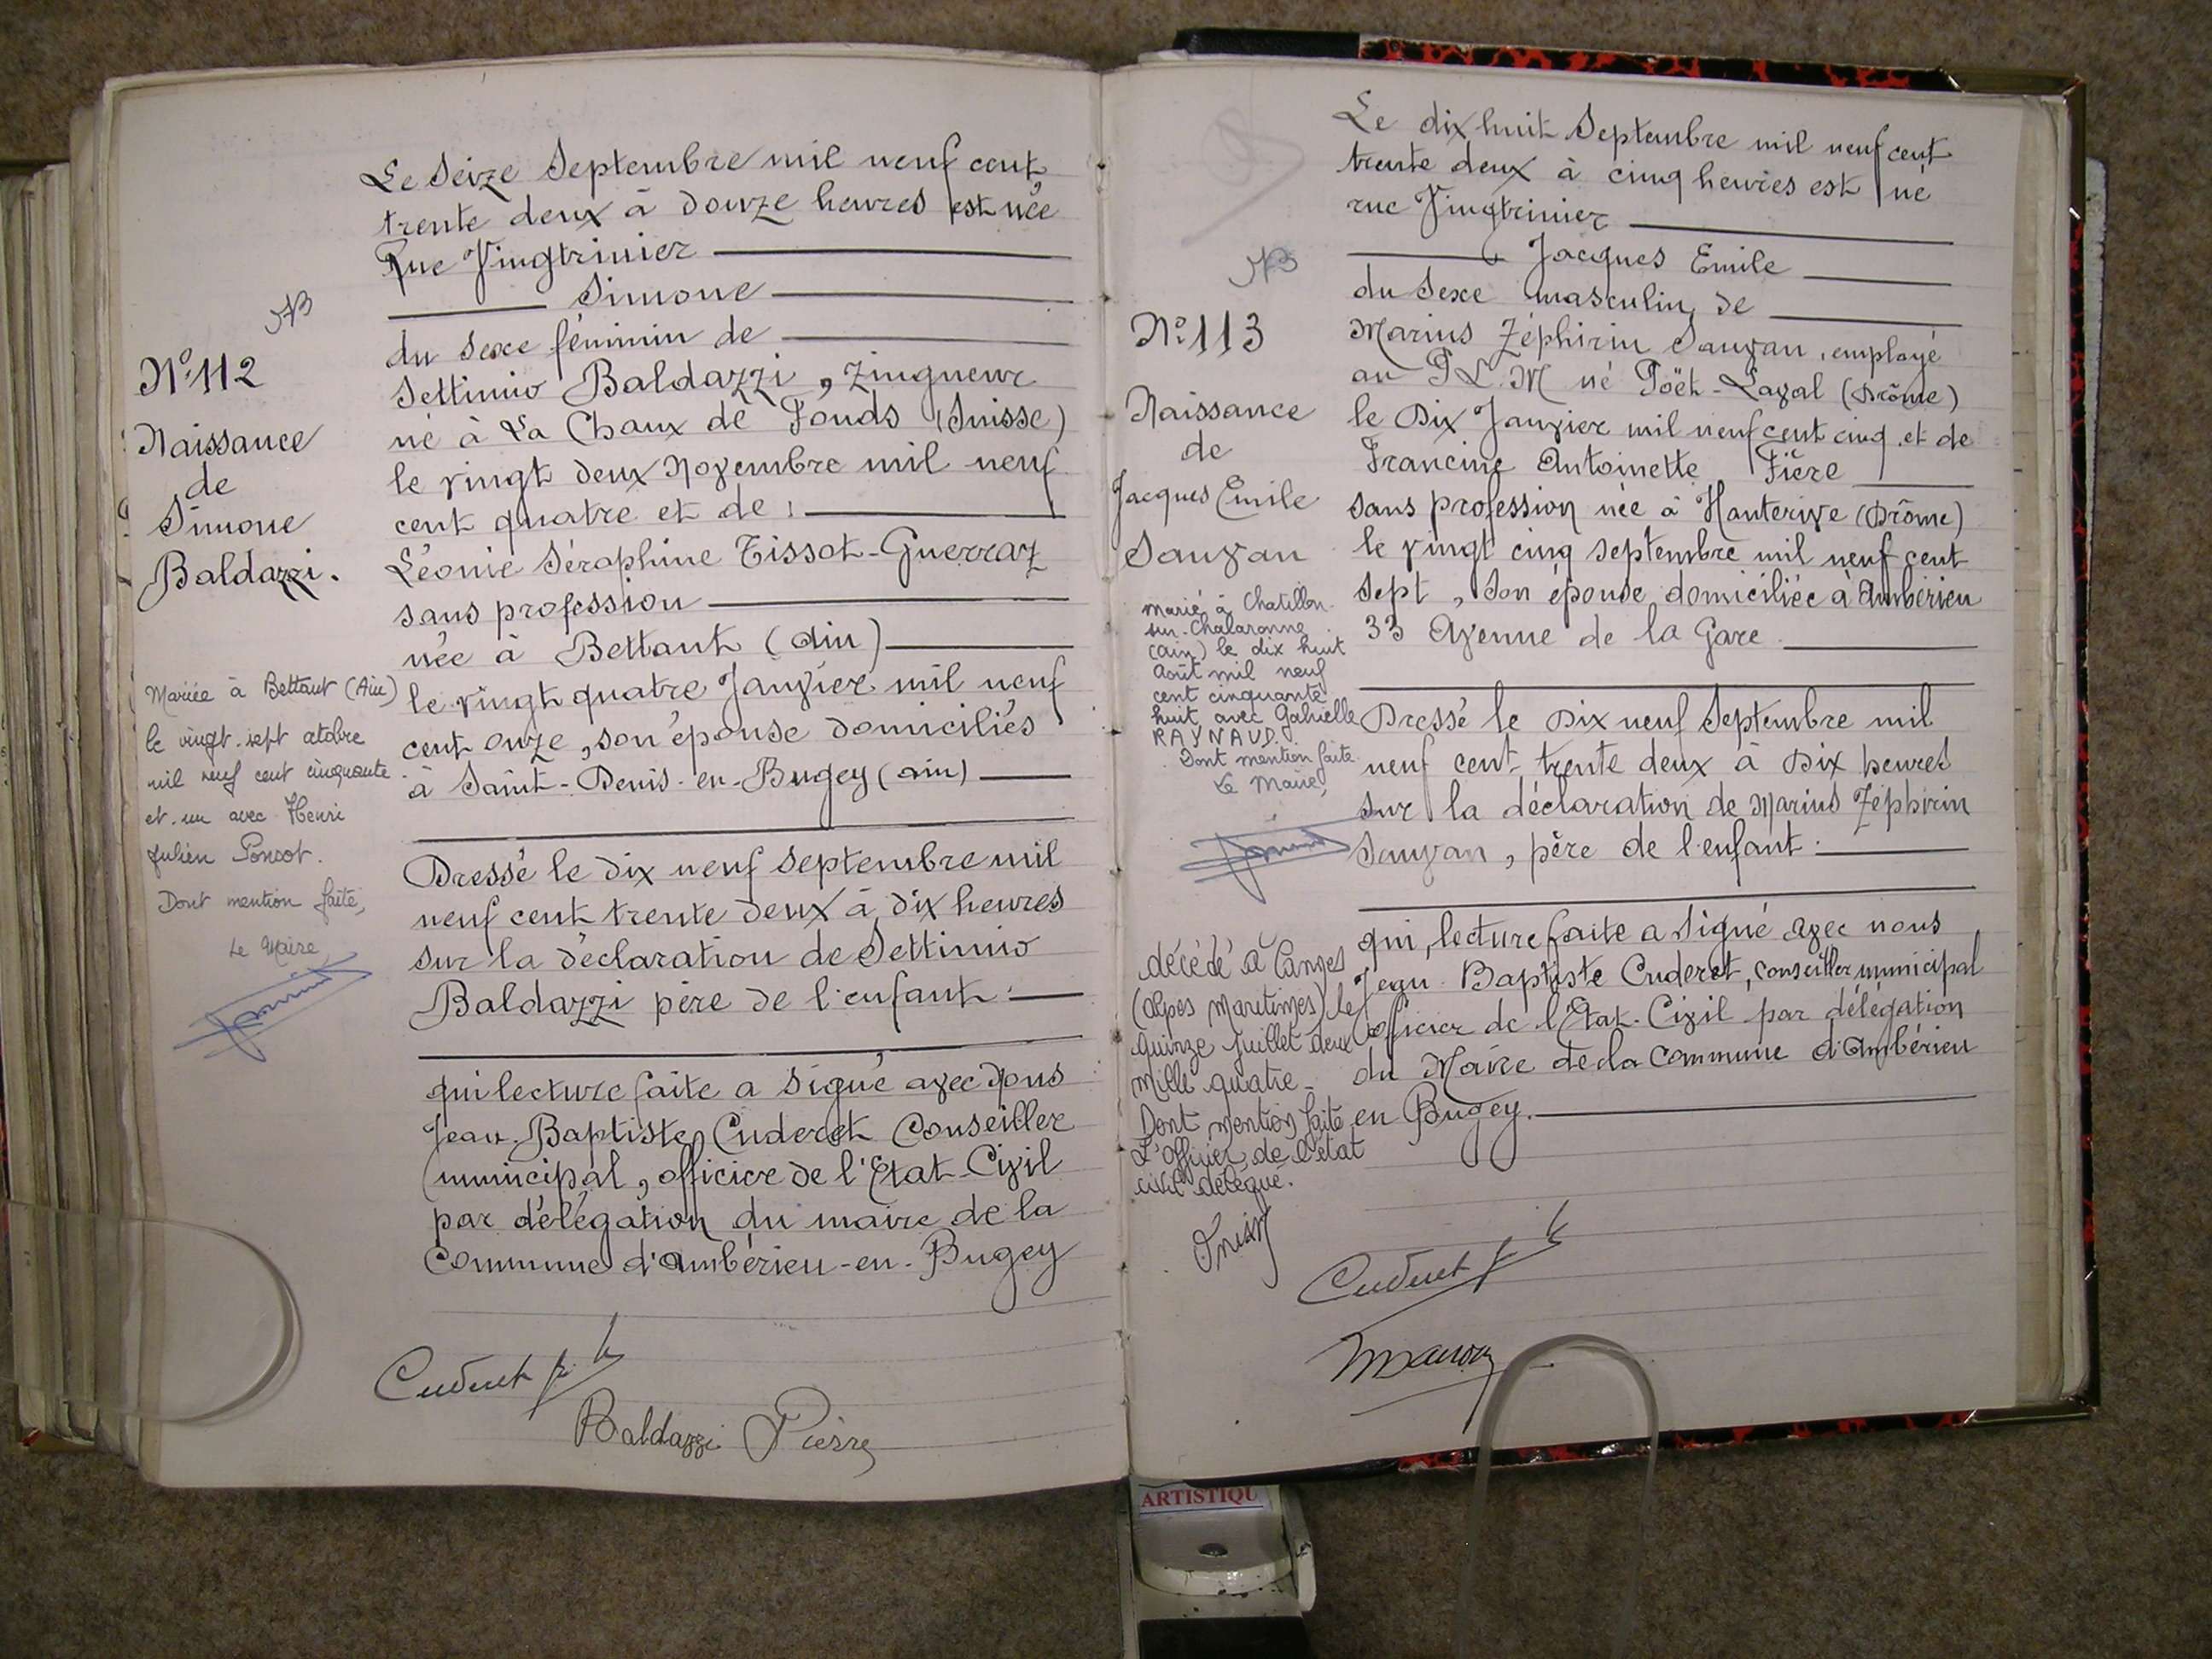 NB
N° 112
Naissance
de
Simone
Baldazzi.
Mariée à Bettant (Ain)
le vingt-sept octobre
mil neuf cent cinquante
et un avec Henri
Julien Ponsot.
Dont mention faite,
Le Maire
Le Seize Septembre mil neuf cent
trente deux à douze heures est née
Rue Vingtrinier
Simone
du sexe féminin de
Settimio Baldazzi, Zingueur
né à La Chaux de Fonds (Suisse)
le vingt deux Novembre mil neuf
cent quatre et de :
Léonie Séraphine Tissot-Guerraz
sans profession
née à Bettant (Ain)
le vingt quatre Janvier mil neuf
cent onze, son épouse domiciliés
à Saint-Denis-en-Bugey (ain)
Dressé le dix neuf Septembre mil
neuf cent trente deux à dix heures
sur la déclaration de Settimio
Baldazzi père de l'enfant :
qui lecture faite a signé avec Nous
Jean-Baptiste Cuderet Conseiller
municipal, officier de l'Etat-Civil
par délégation du maire de la
Commune d'Ambérieu-en-Bugey
Cuderet
Baldazzi Pierre
NB
N° 113
Naissance
de
Jacques Emile
Sauvan
marié à Chatillon-
sur-Chalaronne
(ain) le dix huit
Août mil neuf
cent cinquante
huit avec Gabrielle
RAYNAUD.
Dont mention faite
Le Maire,
décédé à Cannes
(Alpes Maritimes) le
quinze juillet deux
mille quatre-
Dont mention faite
L'officier de l'état
civil délégué.
Le dix huit Septembre mil neuf cent
trente deux à cinq heures est né
rue Vingtrinier
Jacques Emile
du sexe masculin, de
Marius Zéphirin Sauvan, employé
au P.L.M né Poët-Laval (Drôme)
le Dix Janvier mil neuf cent cinq et de
Francine Antoinette Fière
sans profession née à Hauterive (Drôme)
le vingt cinq septembre mil neuf cent
sept, son épouse domiciliée à Ambérieu
33 Avenue de la Gare
Dressé le Dix neuf Septembre mil
neuf cent trente deux à Dix heures
sur la déclaration de Marius Zéphirin
Sauvan, père de l'enfant :
qui, lecture faite a signé avec nous
Jean-Baptiste Cuderet, conseiller municipal
officier de l'Etat-Civil par délégation
du Maire de la Commune d'Ambérieu
en Bugey.
Cuderet
ARTISTIQU